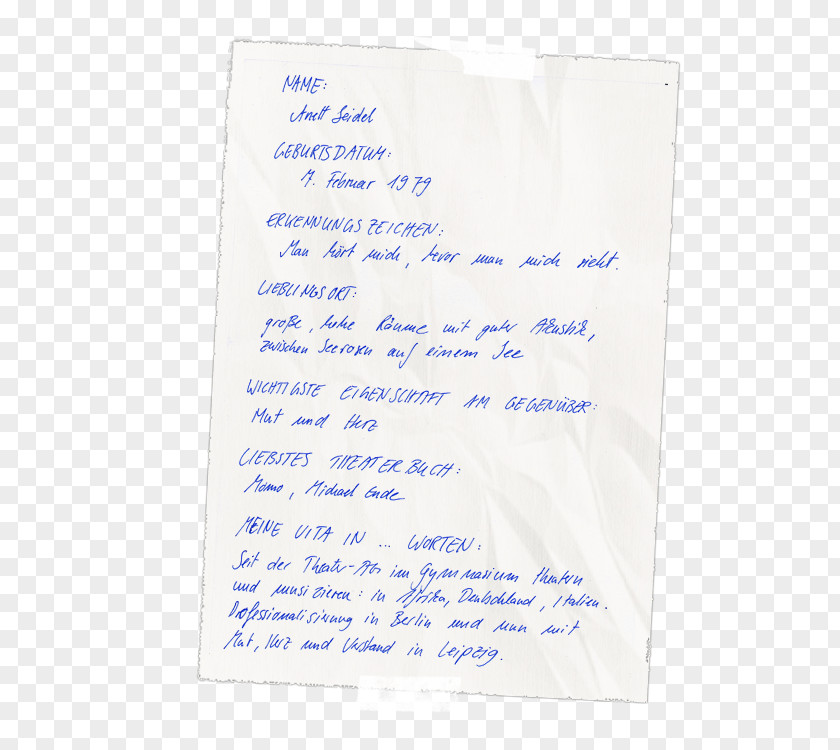 NAME:
Anett Seidel
GEBURTSDATUM:
7. Februar 1979
ERKENNUNGSZEICHEN:
Man hört mich, bevor man mich sieht.
LIEBLINGSORT:
große, hohe Räume mit guter Akustik,
zwischen Seerosen auf einem See
WICHTIGSTE EIGENSCHAFT AM GEGENÜBER:
Mut und Herz
LIEBSTES THEATERBUCH:
Momo, Michael Ende
MEINE VITA IN ... WORTEN:
Seit der Theater-AG im Gymnasium theatern
und musizieren: in Afrika, Deutschland, Italien.
Professionalisierung in Berlin und nun mit
Mut, Herz und Verstand in Leipzig.